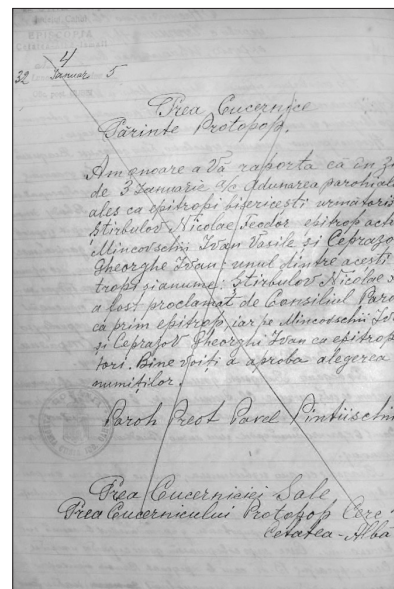 4
32 Januar 5.
Prea Cucernice
Părinte Protopop.
Am onoare a Vă raporta că în
de 3 Januarie a/c Adunarea parohial
ales ca epitropi bisericesti următorii
Știrbulov Nicolae Teodor epitrop act
Mincovschii Ivan Vasile și Ceprazo
Gheorghe Ivan; unul dintre acesti
tropi și anume: Știrbulov Nicolae
a fost proclamat de Consiliul Paro
ca prim epitrop, iar pe Mincovschii
și Ceprazov Gheorghi Ivan ca epitrop
tori. Bine voiți a aproba alegerea
numiților.
Paroh Preot Pavel
Prea Cucerniciei Sale
Prea Cucernicului Protopop Cerc
Cetatea-Albă